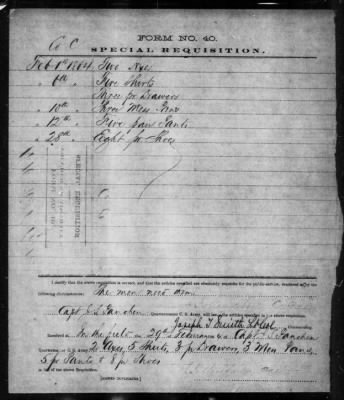 FORM NO. 40.
Co C
SPECIAL REQUISITION.
Feb 1st 1864 Two Axes
" 6th Five Shirts
Three pr Drawers
" 10th Three Mess Pans
" 12th Five pair Pants
" 28th Eight pr Shoes
SPECIAL REQUISITION
I certify that the above requisition is correct; and that the articles specified are absolutely requisite for the public service, rendered so by the
following circumstances: The men need them
Capt Quartermaster C. S. Army, will issue the articles specified in the above requisition.
Joseph T
Commanding
Received at In the field on 29th February of Capt
Quartermaster C. S. Army, 2 Axes, 5 Shirts, 3 pr Drawers, 3 Mess Pans,
5 pr Pants & 8 pr Shoes
in full of the above requisition.
[SIGNED DUPLICATES.]